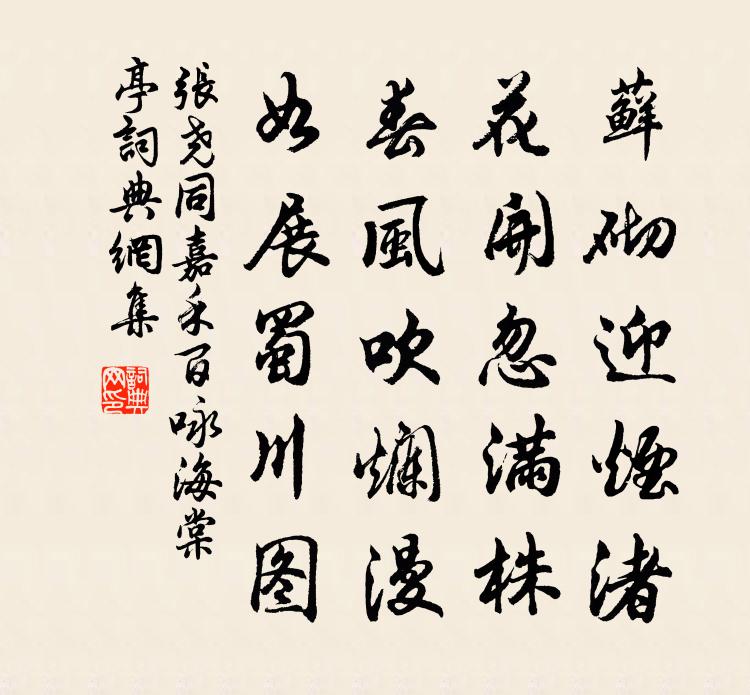 蘚砌迎煙渚
花開忽滿株
春風吹爛漫
如展蜀川图
張堯同嘉禾百咏海棠
亭詞典網集
詞典
网印